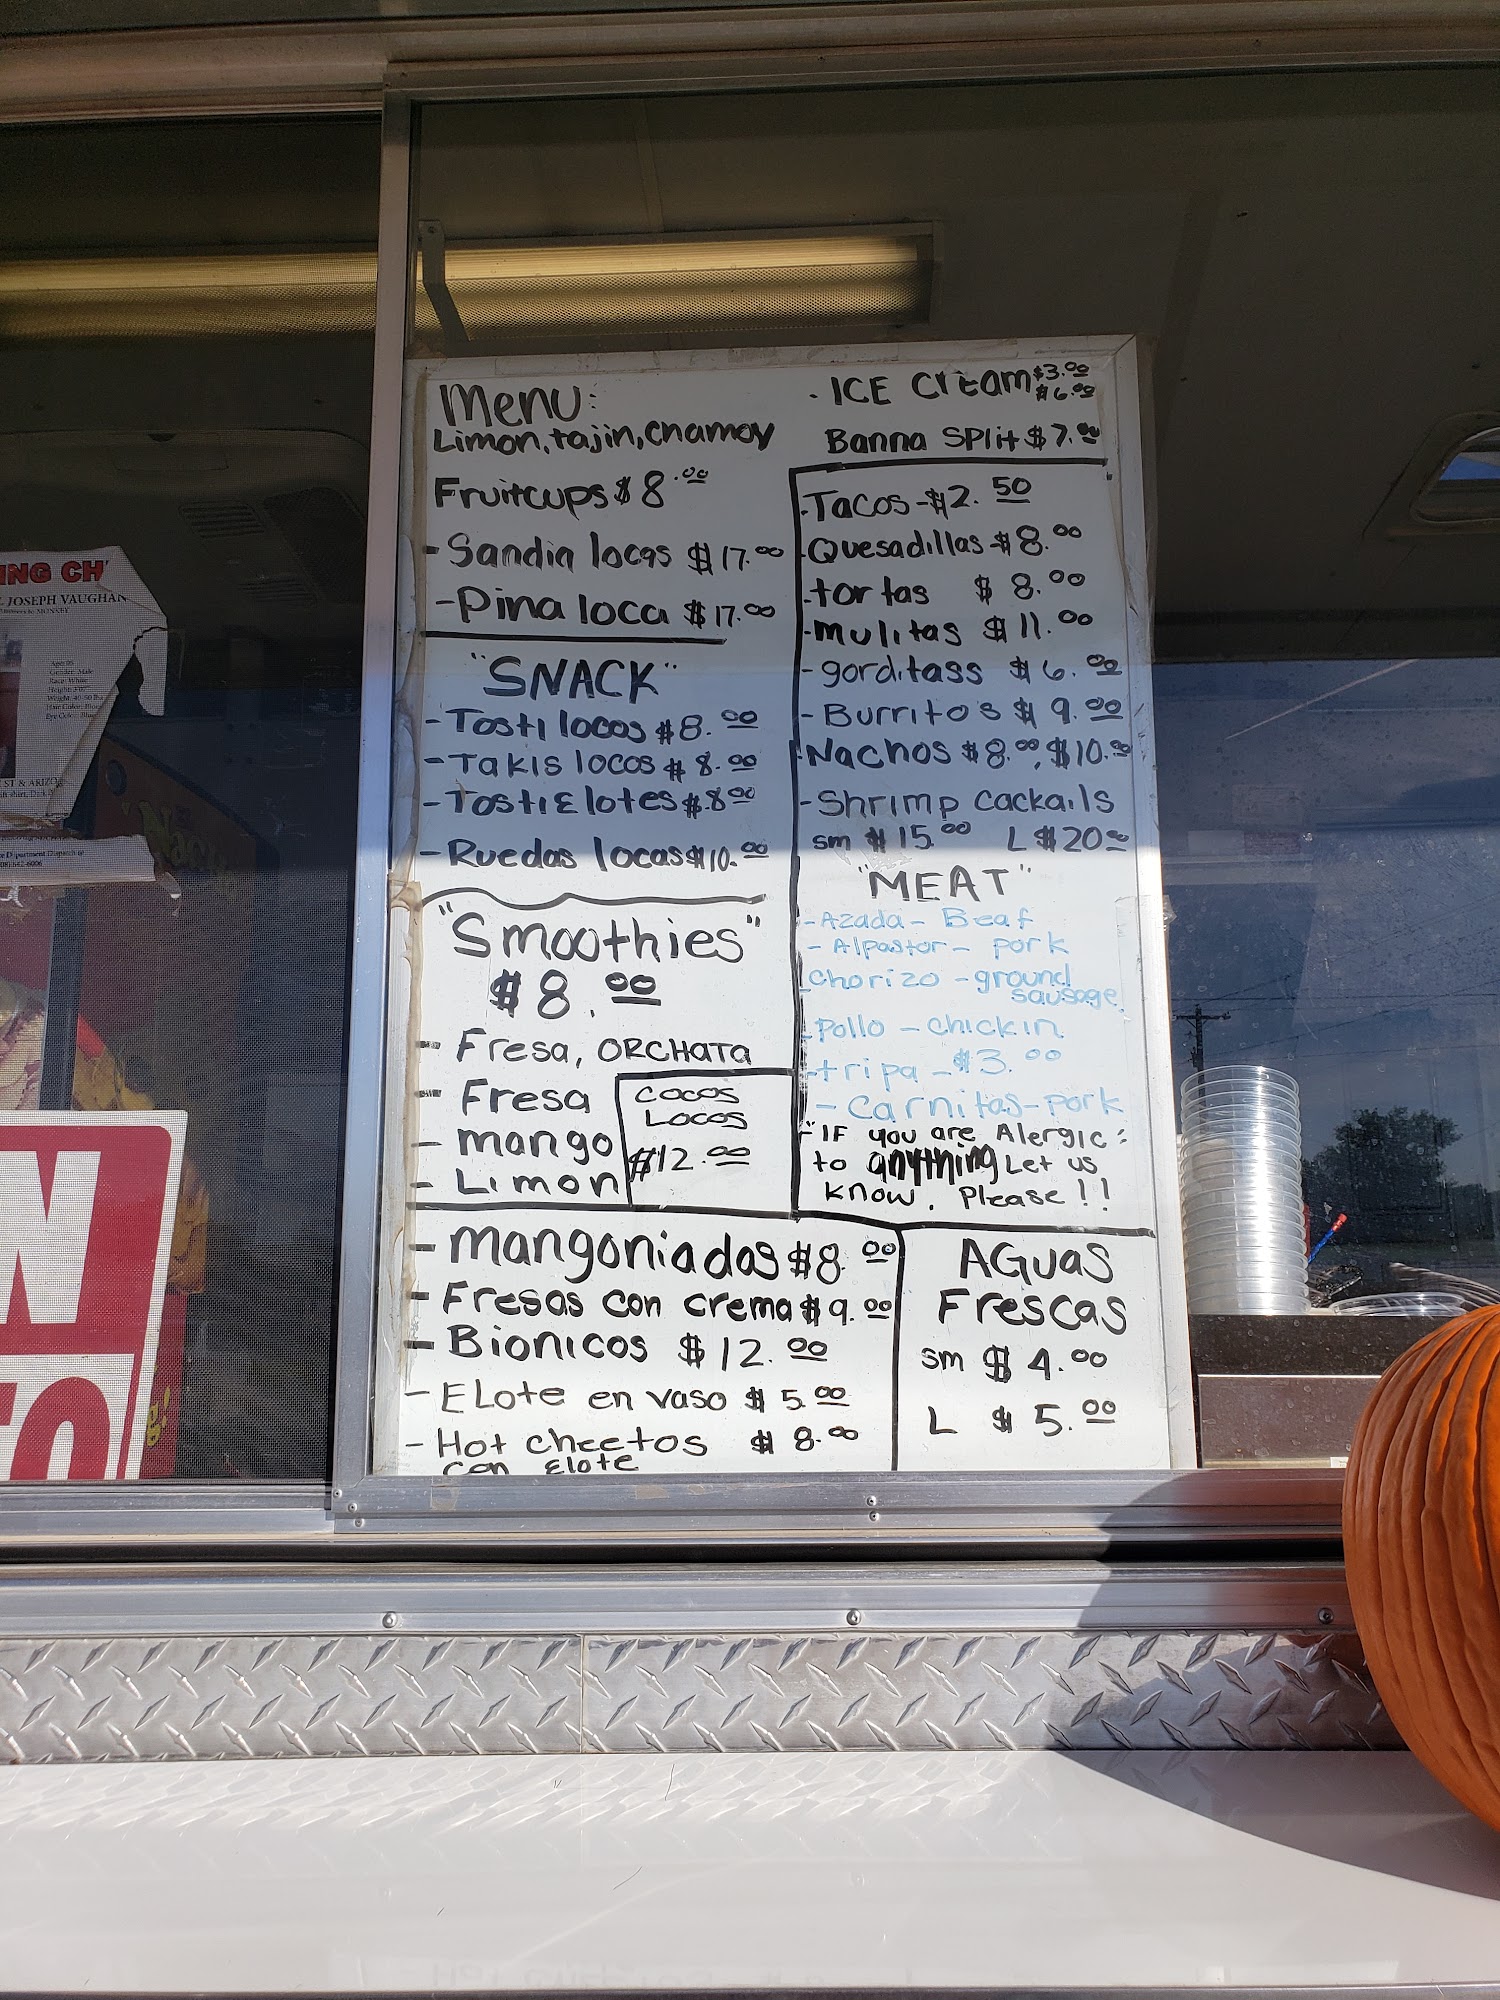 Menu:
Limon, tajin, chamoy
Fruitcups $8.00
- Sandia locas $17.00
- Pina loca $17.00
"SNACK"
- Tosti locos $8.00
- Takis locos $8.00
- Tosti Elotes $8.00
- Ruedas locas $10.00
"Smoothies"
$8.00
- Fresa, ORCHATA
- Fresa
- mango
- Limon
COCOS
LOCOS
$12.00
- Mangoniadas $8.00
- Fresas con crema $9.00
- Bionicos $12.00
- Elote en vaso $5.00
- Hot cheetos $8.00
con Elote
. ICE Cream $3.00
$6.00
Banna Split $7.00
. Tacos - $2.50
- Quesadillas - $8.00
- tortas $8.00
- mulitas $11.00
- gorditass $6.00
- Burritos $9.00
Nachos $8.00, $10.00
- Shrimp Cackails
sm $15.00 L $20.00
"MEAT"
- Azada - Beaf
- Alpastor - pork
- Chorizo - ground
sausage
- pollo - chickin
- tripa - $3.00
- Carnitas - pork
- "IF you are Alergic
to anything Let us
know. Please!!
AGUAS
FRESCAS
sm $4.00
L $5.00
ING CH
JOSEPH VAUGHAN
ST & ARIZO
N
TO